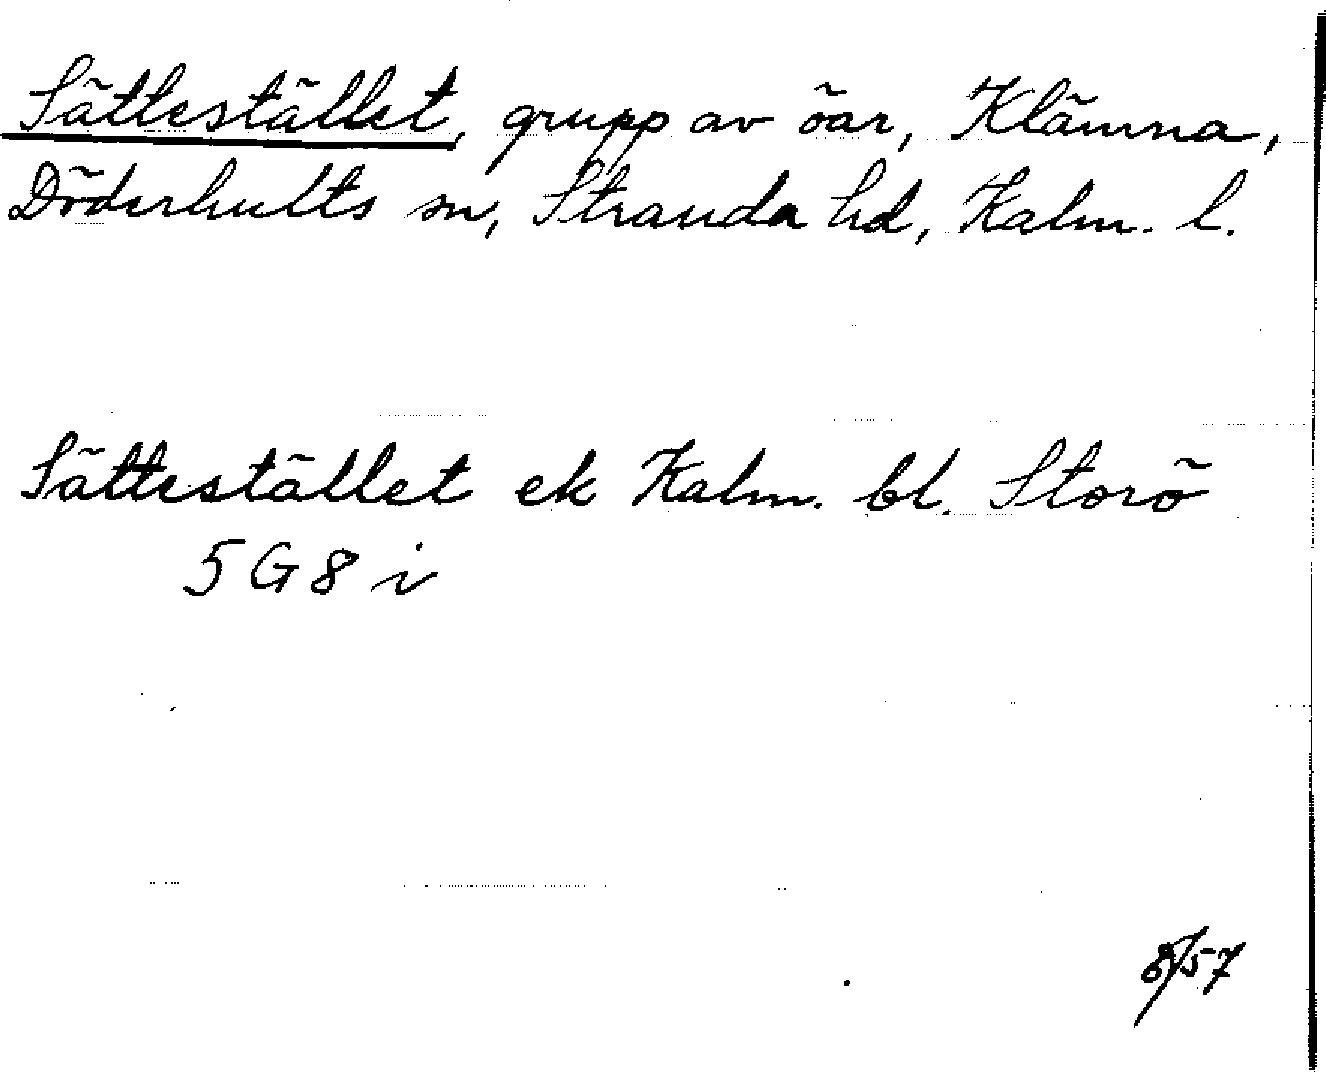 Sättestället, grupp av öar, Klämna,
Döderhults sn, Stranda hd, Kalm. l.
Sättestället ek Kalm. bl. Storö
5 G 8 i
8/57